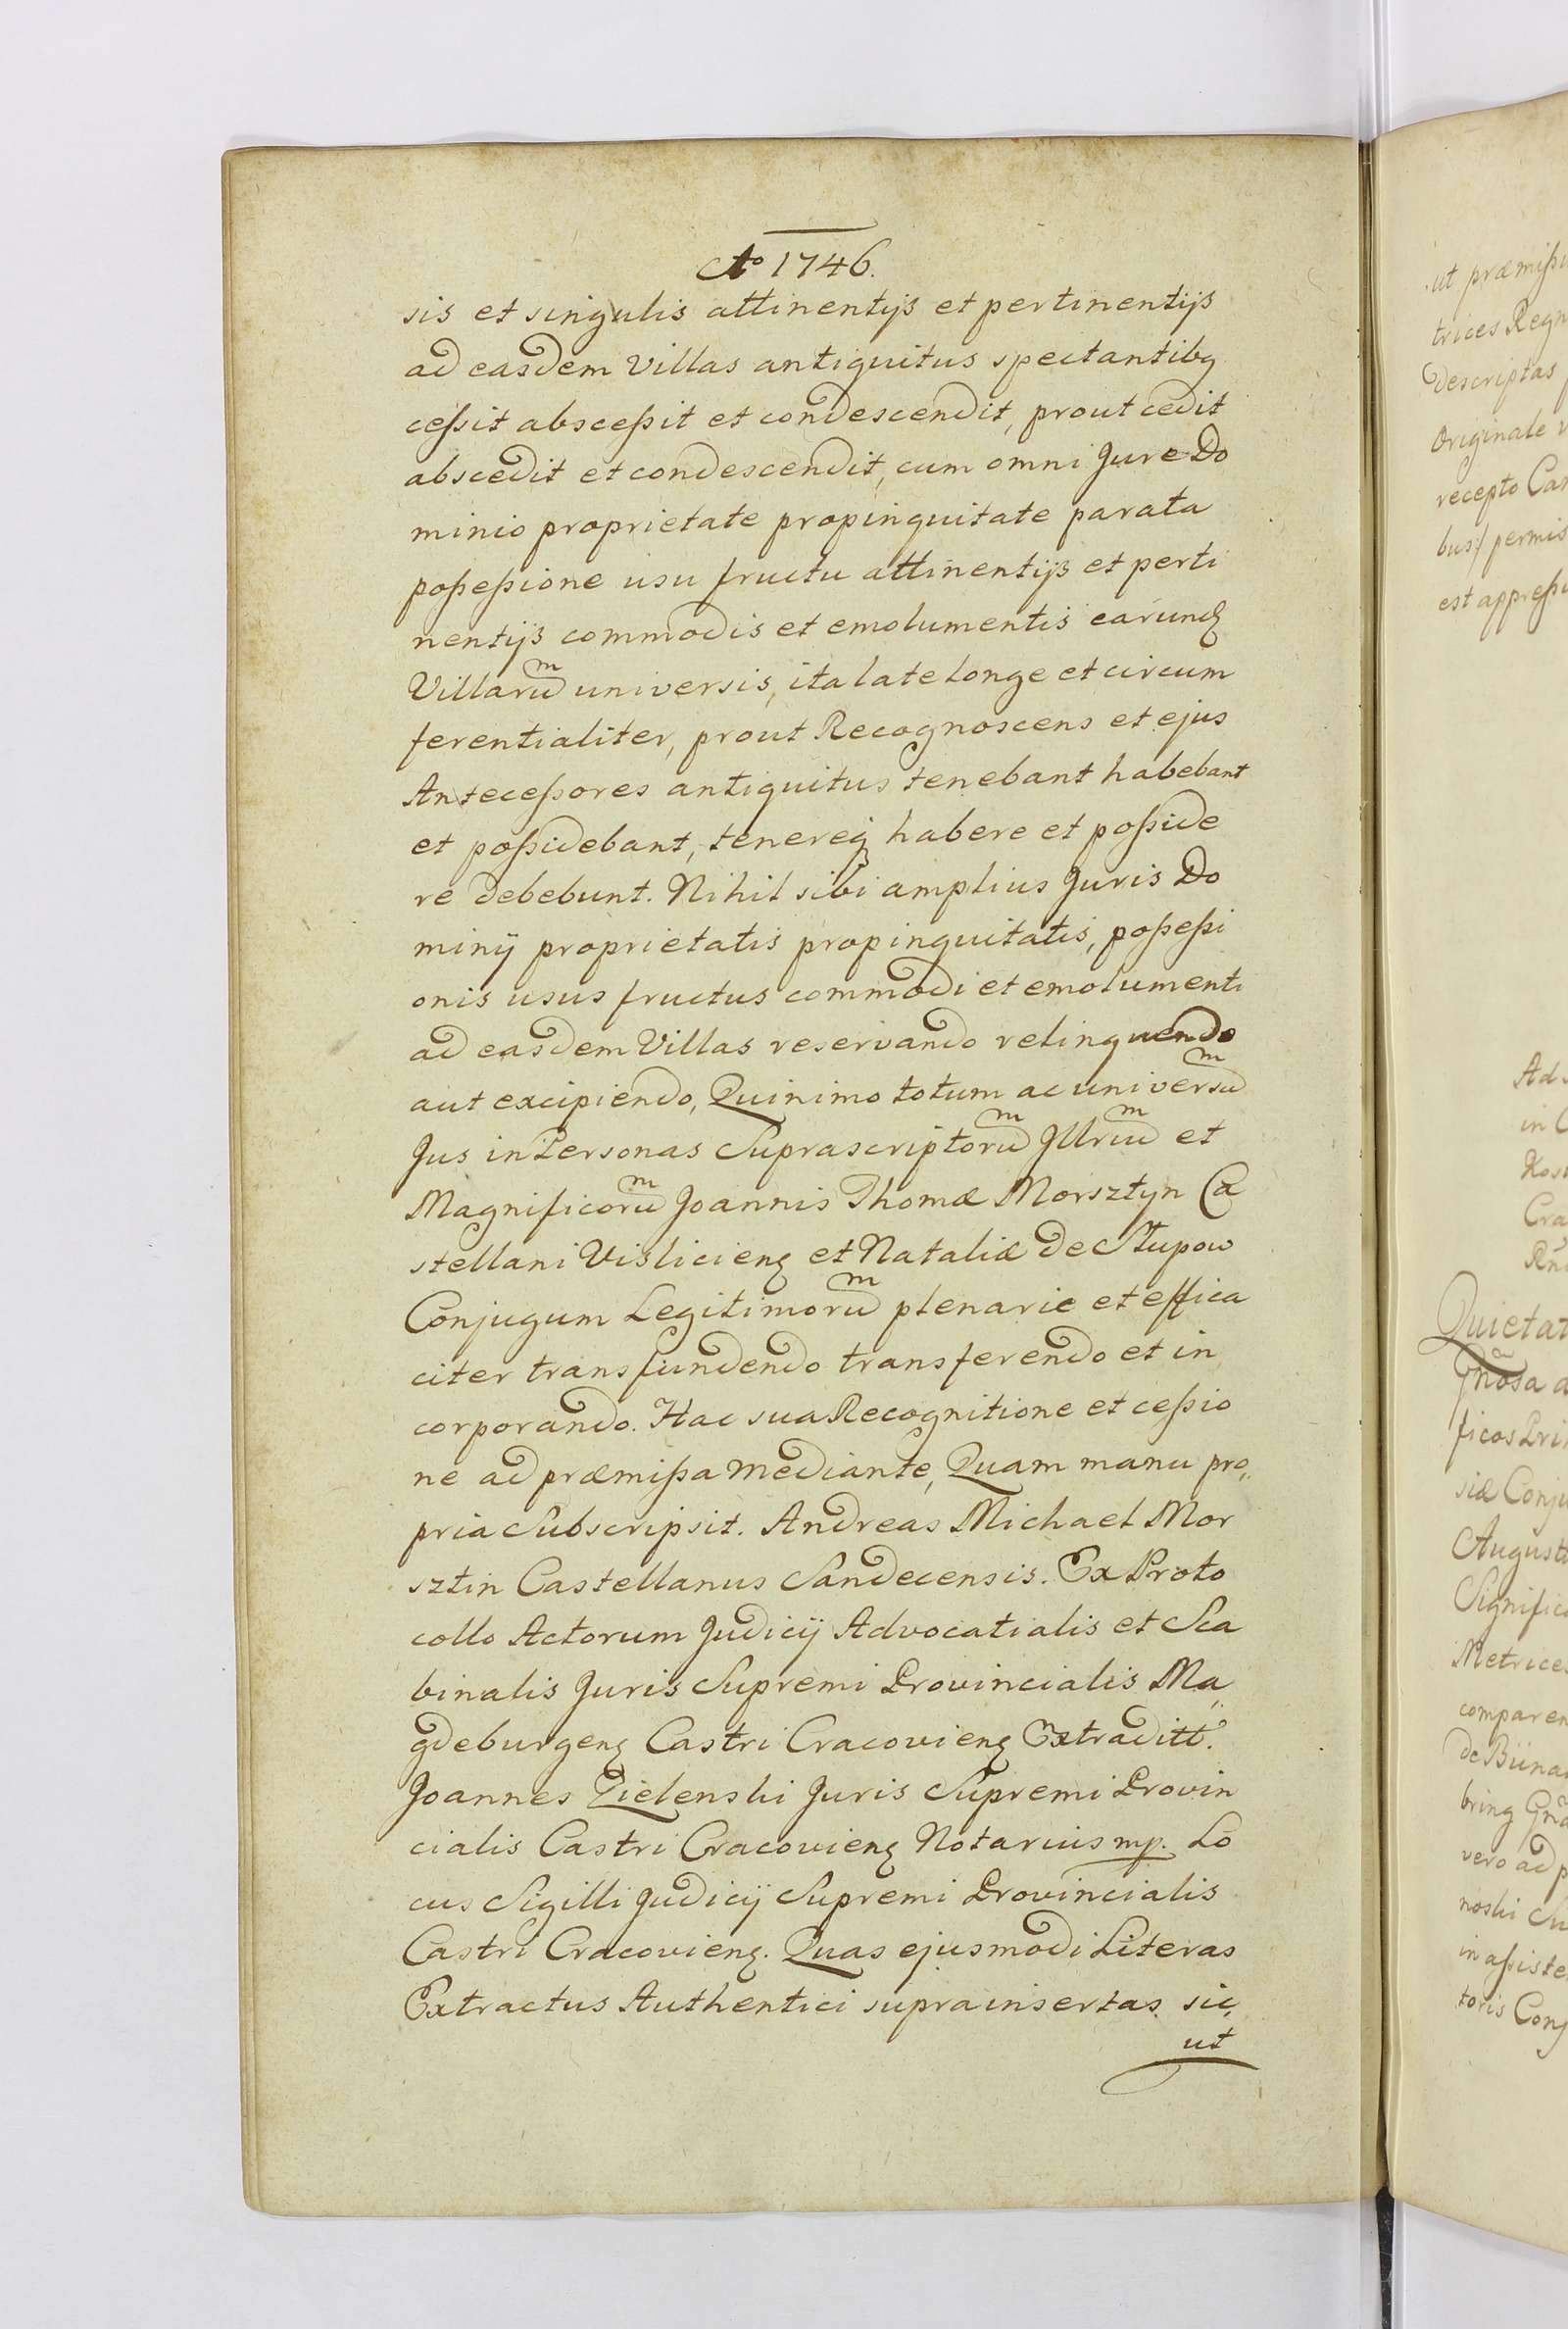 Ao 1746.
sis et singulis attinentijs et pertinentijs
ad easdem Villas antiquitus spectantibꝰ
ceßit absceßit et condescendit, prout cedit
abscedit et condescendit, cum omni Jure Do
minio proprietate propinquitate parata
poßeßione usu fructu attinentijs et perti
nentijs commodis et emolumentis earunđ
Villarum universis, ita late longe et circum
ferentialiter, prout Recognoscens et ejus
Anteceßores antiquitus tenebant habebant
et poßidebant, tenereq habere et poßide
re debebunt. Nihil sibi amplius Juris Do
minij proprietatis propinquitatis, poßeßi
onis usus fructus commodi et emolumenti
ad easdem Villas reservando relinquendo
aut excipiendo, Quinimo totum ac universum
Jus in Personas Suprascriptorum Jllrium et
Magnificorum Joannis Thomæ Morsztyn Ca
stellani Vislicienꝫ et Nataliæ de Słupow
Conjugum Legitimorum plenarie et effica
citer transfundendo transferendo et in
corporando. Hac sua Recognitione et ceßio
ne ad præmißa mediante, Quam manu pro„
pria Subscripsit. Andreas Michael Mor
sztin Castellanus Sandecensis. Ex Proto
collo Actorum Judicij Advocatialis et Sca
binalis Juris Supremi Provincialis Ma„
gdeburgenꝫ Castri Cracovienꝫ Extraditt.
Joannes Zielenski Juris Supremi Provin
cialis Castri Cracovienꝫ Notarius mp. Lo
cus Sigilli Judicij Supremi Provincialis
Castri Cracovienꝫ. Quas ejusmodi Literas
Extractus Authentici suprainsertas sic„
ut
ut præmißi
trices Regn
descriptas
Originale
recepto Can
bus/ permis
est appreßi
Ad
in C
Cra
Quietat
ficos Pri
siæ Conju
August
Signific
Metrices
comparen
vero ad p
noski Su
in aßiste
toris Conj